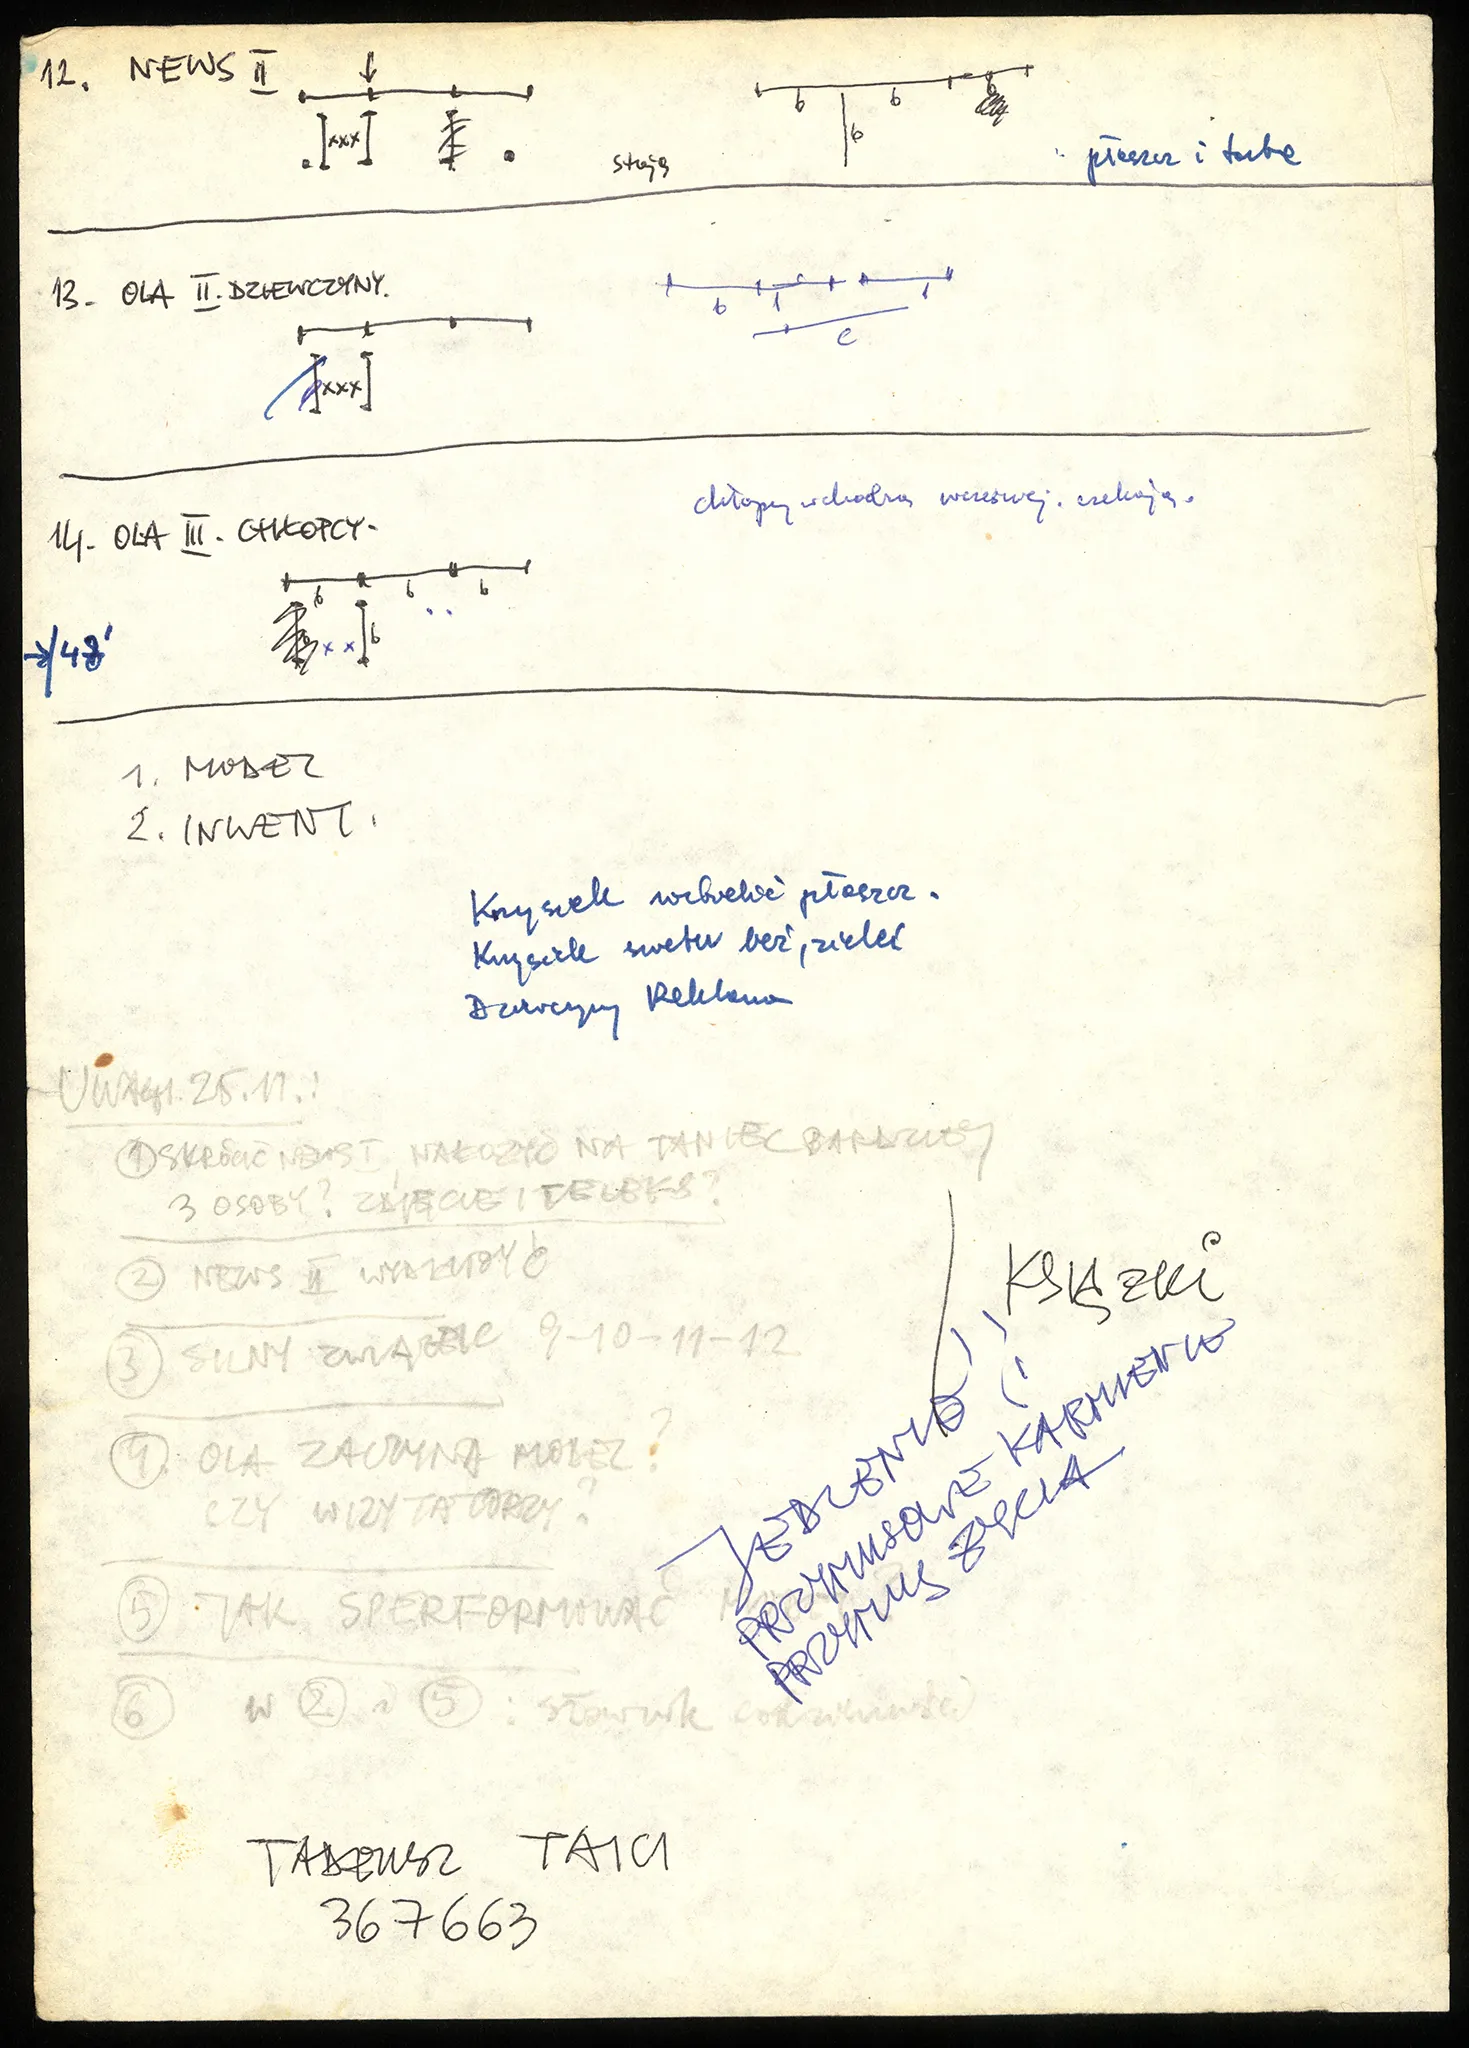 12. NEWS II
b b b
]xxx[ b
stoją
płaszcz i torbę
13- OLA II. DZIEWCZYNY.
b 1 1
c
]xxx]
14- OLA III. CHŁOPCY-
chłopcy wchodzą wcześniej. czekają.
b b b
x x b
→/48'
1. MODEL
2. INWENT.
Krysiek płaszcz.
Krysiek sweter beż, zieleń
Dziewczyny Reklama
UWAGI 25.11.!
① SKRÓCIĆ NEWS I, NAŁOŻYĆ NA TANIEC BARDZIEJ
3 OSOBY? ZDJĘCIE I TELEKS?
② NEWS II WYDŁUŻYĆ
③ SILNY ZWIĄZEK 9-10-11-12
④. OLA ZACZYNA MODEL?
CZY WIZYTATORZY?
⑤ JAK SPERFORMOWAĆ
⑥ w ② i ⑤ : słownik codzienności
KSIĄZKI
JEDZENIE
PRZYMUSOWE KARMIENIE
PRZYMUS ŻYCIA
TADEUSZ TAICI
367663